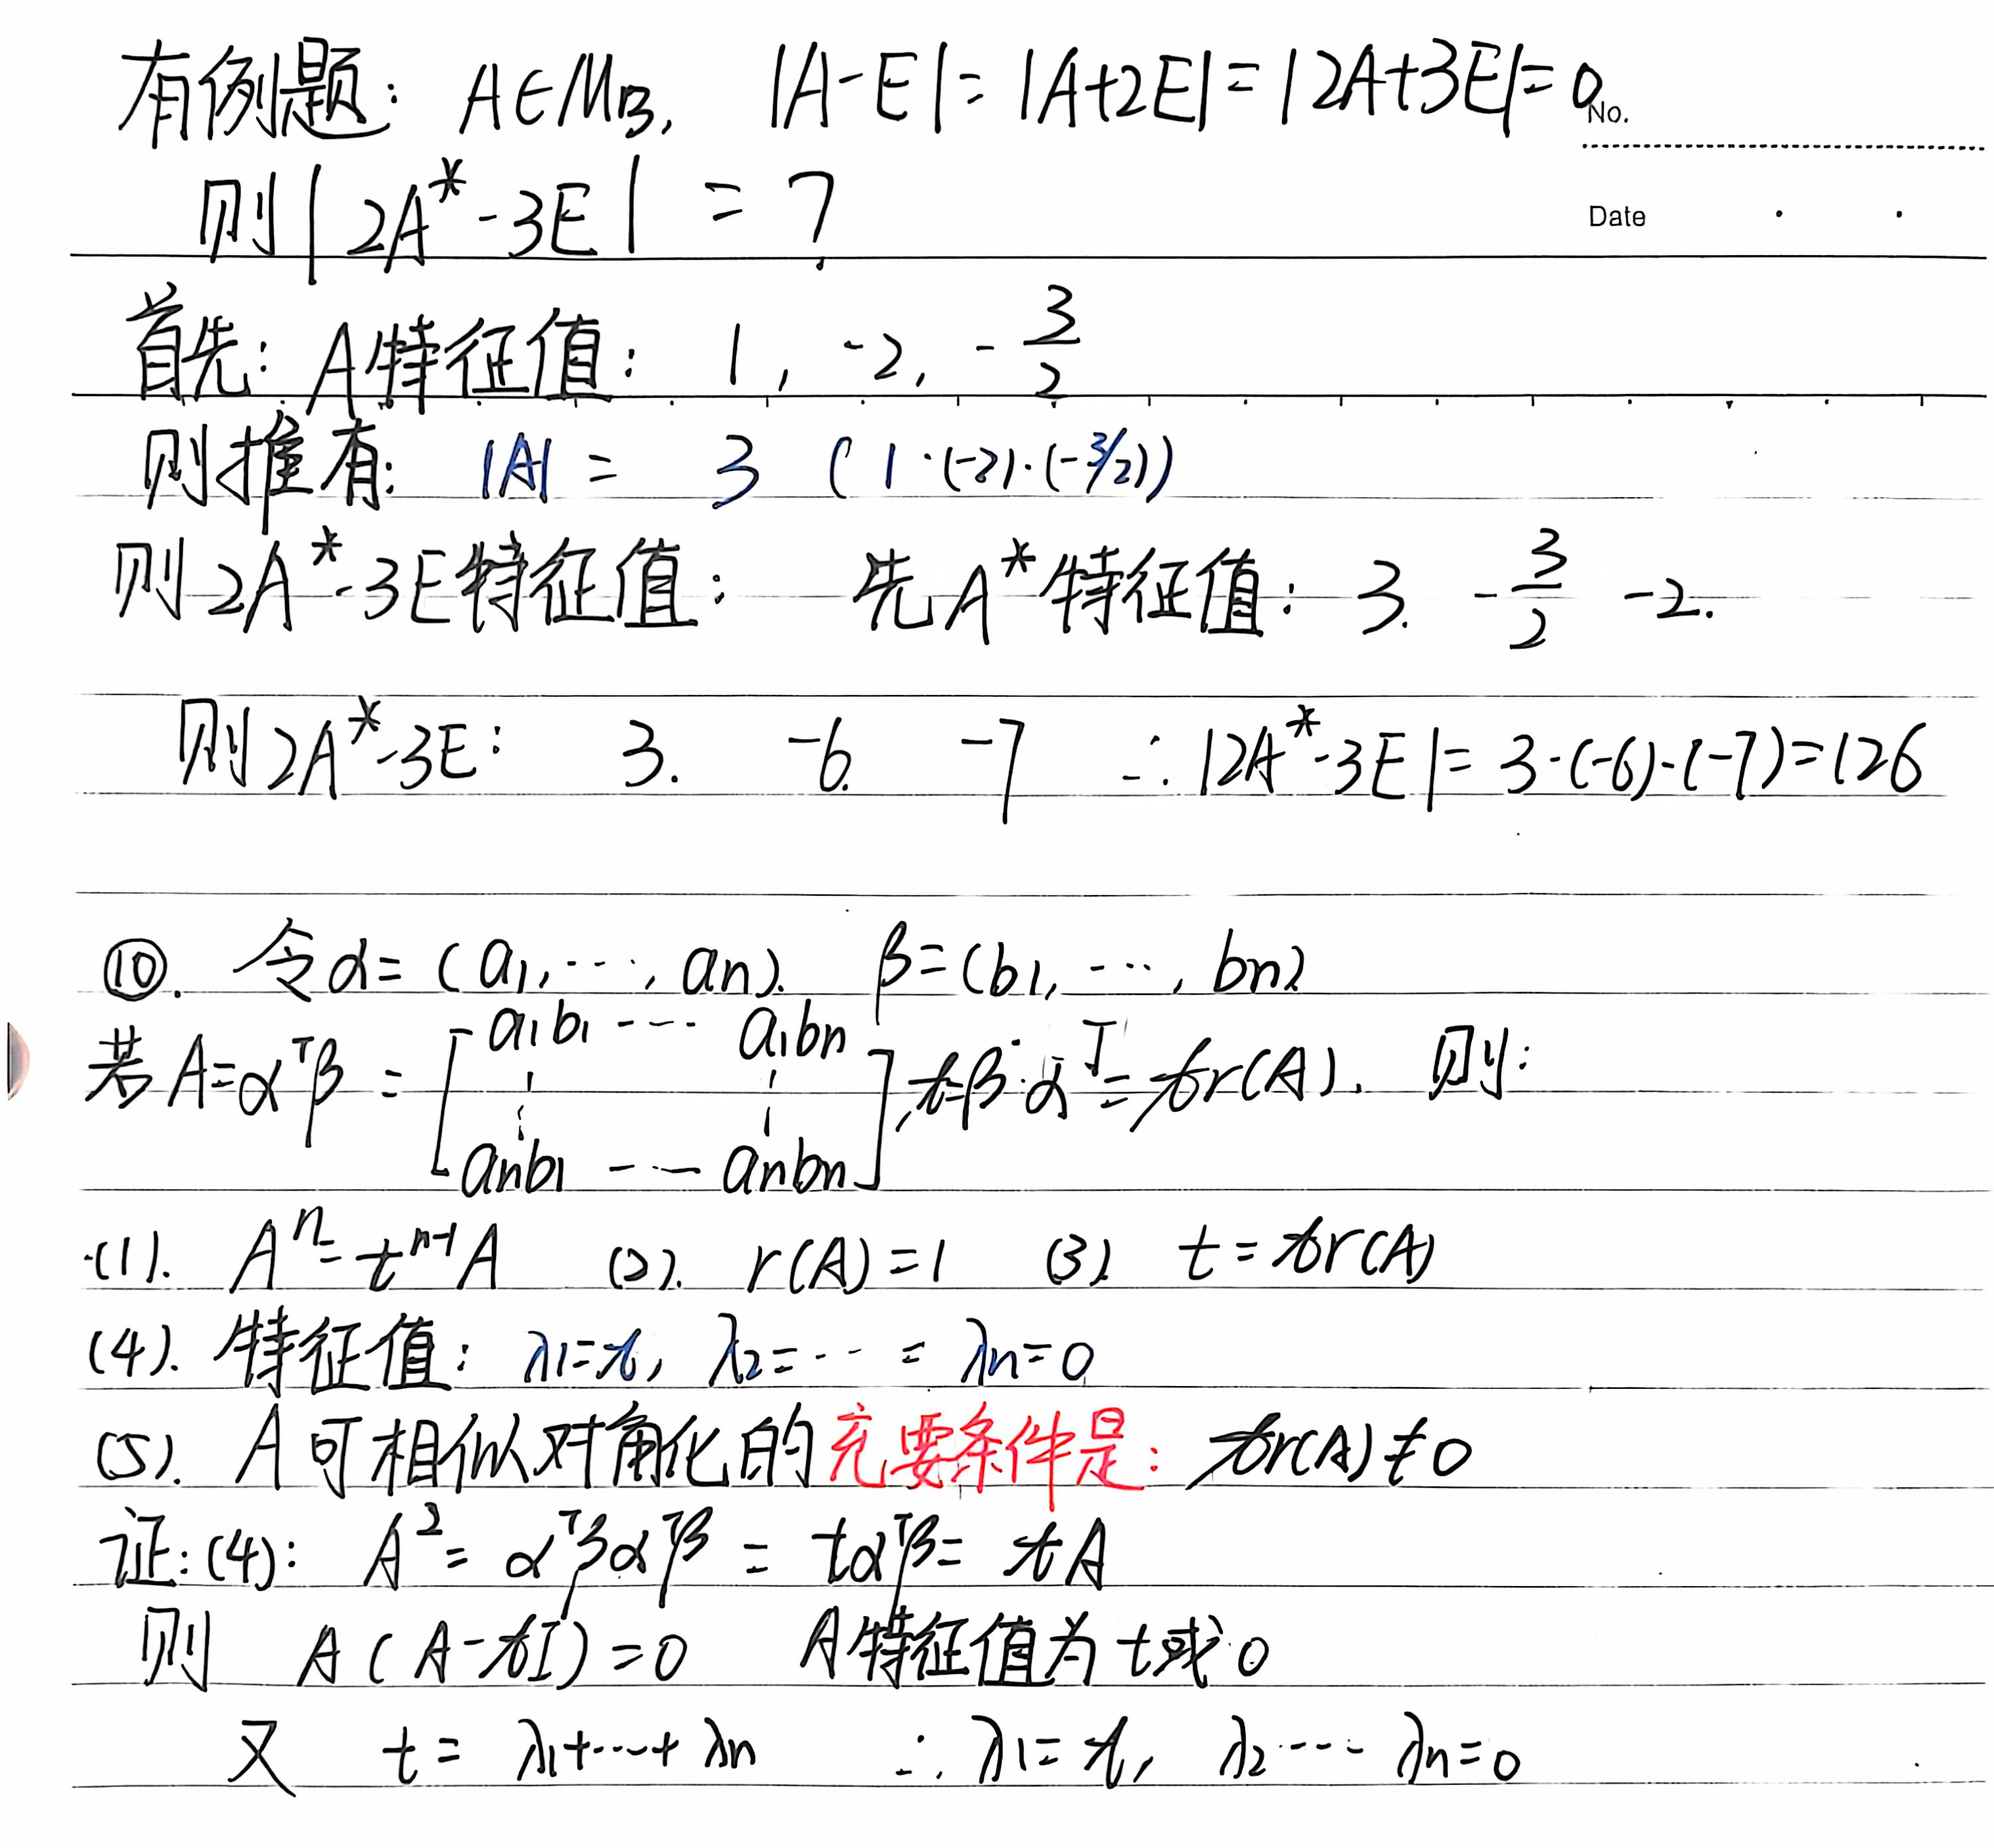 有例题: A∈M₃, |A-E|=|A+2E|=|2A+3E|=0
No.
则|2A*-3E| = ?
Date
首先: A特征值: 1, -2, -3/2
则推有: |A| = 3 (1·(-2)·(-3/2))
则2A*-3E特征值: 先A*特征值: 3. -3/2 -2.
则2A*-3E: 3. -6. -7 ∴|2A*-3E|=3·(-6)·(-7)=126
⑩. 令α=(a1,···,an). β=(b1,···,bn)
若A=αᵀβ = [a1b1 ··· a1bn ⋮ ⋮ anb1 ··· anbn], t=β·αᵀ=tr(A). 则:
(1). Aⁿ=tⁿ⁻¹A (2). r(A)=1 (3) t=tr(A)
(4). 特征值: λ1=t, λ2=···=λn=0
(5). A可相似对角化的充要条件是: tr(A)≠0
证:(4): A²=αᵀβαᵀβ=tαᵀβ=tA
则 A(A-tI)=0 A特征值为t或0
又 t=λ1+···+λn ∴λ1=t, λ2···λn=0